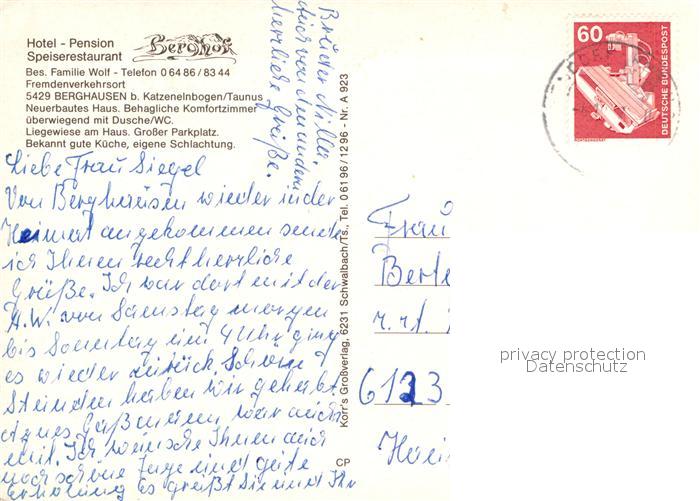 Hotel - Pension Berghof
Speiserestaurant
Bes. Familie Wolf - Telefon 0 64 86 / 83 44
Fremdenverkehrsort
5429 BERGHAUSEN b. Katzenelnbogen/Taunus
Neuerbautes Haus. Behagliche Komfortzimmer
überwiegend mit Dusche/WC.
Liegewiese am Haus. Großer Parkplatz.
Bekannt gute Küche, eigene Schlachtung.
Liebe Frau Siegel
Von Berghausen wieder in der
Heimat angekommen sende
ich Ihnen recht herzliche
Grüße. Ich war dort mit der
A.W. von Samstag morgen
bis Sonntag um 4 Uhr ging
es wieder zurück. Schöne
Stunden haben wir gehabt.
Agnes Gaßmann war auch
mit. Ich wünsche Ihnen auch
noch schöne Tage und gute
Erholung es grüßt Sie und Ihr
Bruder Willi.
Auch von den andern
herzliche Grüße.
Korr's Großverlag, 6231 Schwalbach/Ts., Tel. 0 61 96 / 12 96 - Nr. A 923
CP
60
DEUTSCHE BUNDESPOST
Frau
6123
privacy protection
Datenschutz